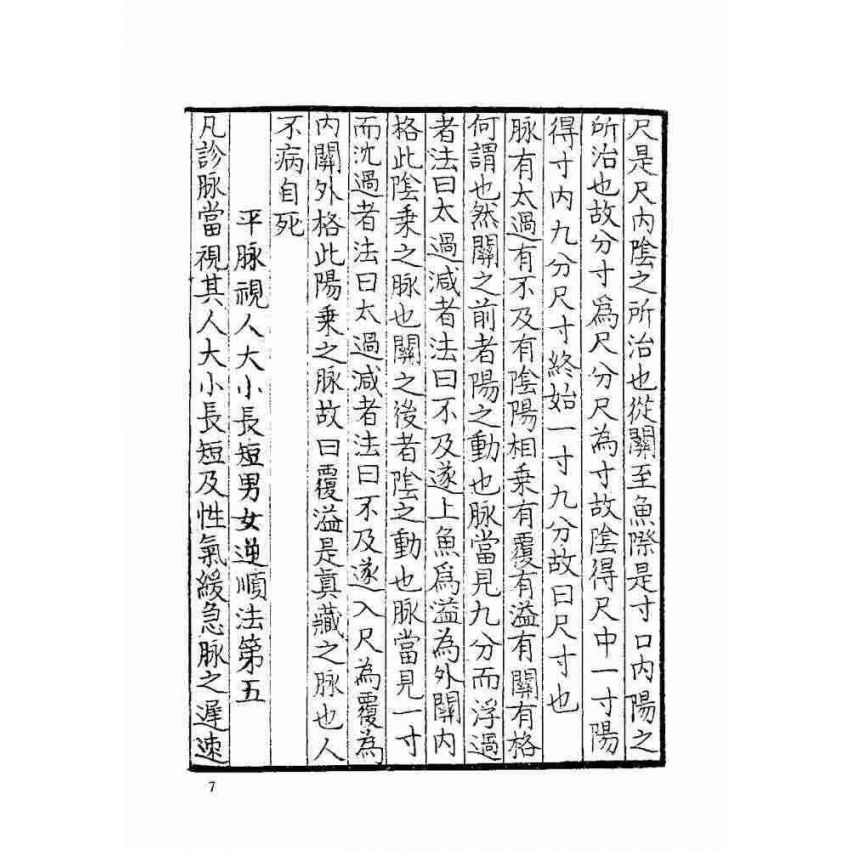 尺是尺內陰之所治也從關至魚際是寸口內陽之
所治也故分寸爲尺分尺為寸故陰得尺中一寸陽
得寸內九分尺寸終始一寸九分故曰尺寸也
脉有太過有不及有陰陽相乗有覆有溢有關有格
何謂也然關之前者陽之動也脉當見九分而浮過
者法曰太過减者法曰不及遂上魚爲溢為外關內
格此陰乗之脉也關之後者陰之動也脉當見一寸
而沈過者法曰太過减者法曰不及遂入尺為覆為
內關外格此陽乗之脉故曰覆溢是真藏之脉也人
不病自死
平脉視人大小長短男女逆順法第五
凡診脉當視其人大小長短及性氣緩急脉之遲速
7